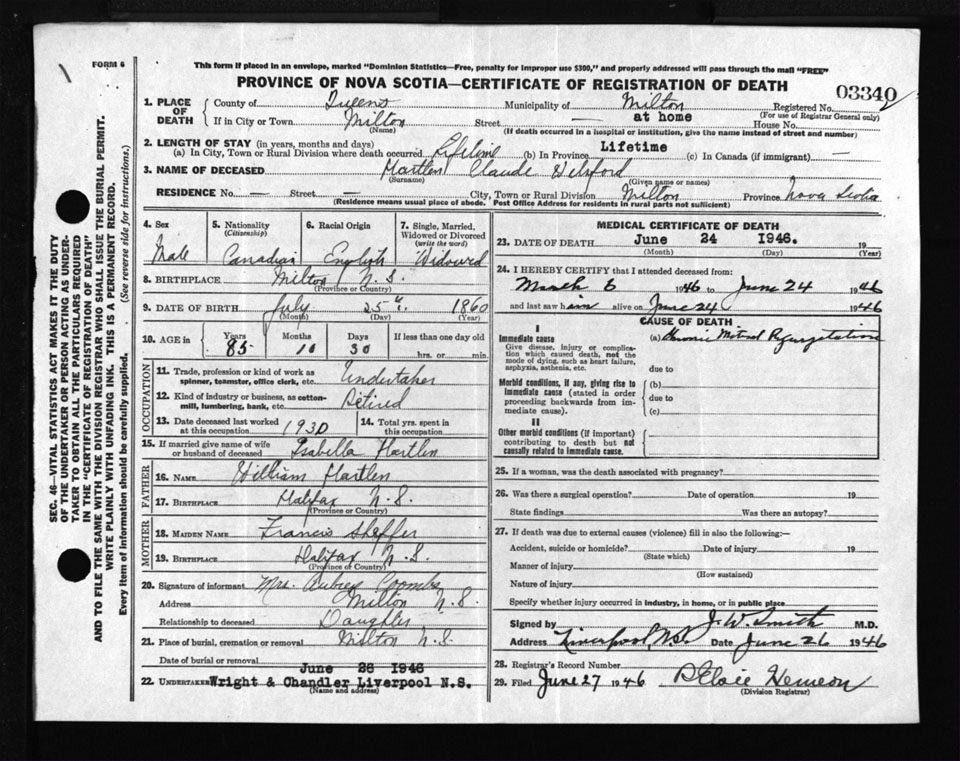 FORM 6
This form if placed in an envelope, marked "Dominion Statistics—Free, penalty for improper use $300," and properly addressed will pass through the mail "FREE"
PROVINCE OF NOVA SCOTIA—CERTIFICATE OF REGISTRATION OF DEATH
03340
1. PLACE OF DEATH { County of Queens Municipality of Milton Registered No.
(For use of Registrar General only)
If in City or Town Milton Street — at home House No.
(Name) (If death occurred in a hospital or institution, give the name instead of street and number)
2. LENGTH OF STAY (in years, months and days)
(a) In City, Town or Rural Division where death occurred Lifetime (b) In Province Lifetime (c) In Canada (if immigrant) —
3. NAME OF DECEASED Hartlen Claude
(Surname) (Given name or names)
RESIDENCE No. — Street — City, Town or Rural Division Milton Province Nova Scotia
(Residence means usual place of abode. Post Office Address for residents in rural parts not sufficient)
SEC. 46—VITAL STATISTICS ACT MAKES IT THE DUTY
OF THE UNDERTAKER OR PERSON ACTING AS UNDER-
TAKER TO OBTAIN ALL THE PARTICULARS REQUIRED
IN THE "CERTIFICATE OF REGISTRATION OF DEATH"
AND TO FILE THE SAME WITH THE DIVISION REGISTRAR WHO SHALL ISSUE THE BURIAL PERMIT.
WRITE PLAINLY WITH UNFADING INK. THIS IS A PERMANENT RECORD.
Every item of information should be carefully supplied. (See reverse side for instructions.)
4. Sex 5. Nationality (Citizenship) 6. Racial Origin 7. Single, Married, Widowed or Divorced (write the word)
Male Canadian English Widowed
8. BIRTHPLACE Milton N.S.
(Province or Country)
9. DATE OF BIRTH July 25th 1860
(Month) (Day) (Year)
10. AGE in { Years Months Days If less than one day
85 10 30 hrs. or min.
OCCUPATION
11. Trade, profession or kind of work as spinner, teamster, office clerk, etc. Undertaker
12. Kind of industry or business, as cotton-mill, lumbering, bank, etc. Retired
13. Date deceased last worked at this occupation 1930 14. Total yrs. spent in this occupation
15. If married give name of wife or husband of deceased Isabella Hartlen
FATHER
16. NAME William Hartlen
17. BIRTHPLACE Halifax N.S.
(Province or Country)
MOTHER
18. MAIDEN NAME Francis Sheffer
19. BIRTHPLACE Halifax N.S.
(Province or Country)
20. Signature of informant Mrs. Aubrey Coombs
Address Milton N.S.
Relationship to deceased Daughter
21. Place of burial, cremation or removal Milton N.S.
Date of burial or removal June 26 1946
22. UNDERTAKER Wright & Chandler Liverpool N.S.
(Name and address)
MEDICAL CERTIFICATE OF DEATH
23. DATE OF DEATH June 24 1946. 19
(Month) (Day) (Year)
24. I HEREBY CERTIFY that I attended deceased from:
March 6 1946 to June 24 1946
and last saw him alive on June 24 1946
CAUSE OF DEATH
I
Immediate cause (a) Chronic Mitral Regurgitation
Give disease, injury or complication which caused death, not the mode of dying, such as heart failure, asphyxia, asthenia, etc.
due to
Morbid conditions, if any, giving rise to immediate cause (stated in order proceeding backwards from immediate cause).
(b)
due to
(c)
II
Other morbid conditions (if important) contributing to death but not causally related to immediate cause.
25. If a woman, was the death associated with pregnancy?
26. Was there a surgical operation? Date of operation 19
State findings Was there an autopsy?
27. If death was due to external causes (violence) fill in also the following:—
Accident, suicide or homicide? Date of injury 19
(State which)
Manner of injury
(How sustained)
Nature of injury
Specify whether injury occurred in industry, in home, or in public place
Signed by J. W. Smith M.D.
Address Liverpool, N.S. Date June 26 1946
28. Registrar's Record Number
29. Filed June 27 1946
(Division Registrar)